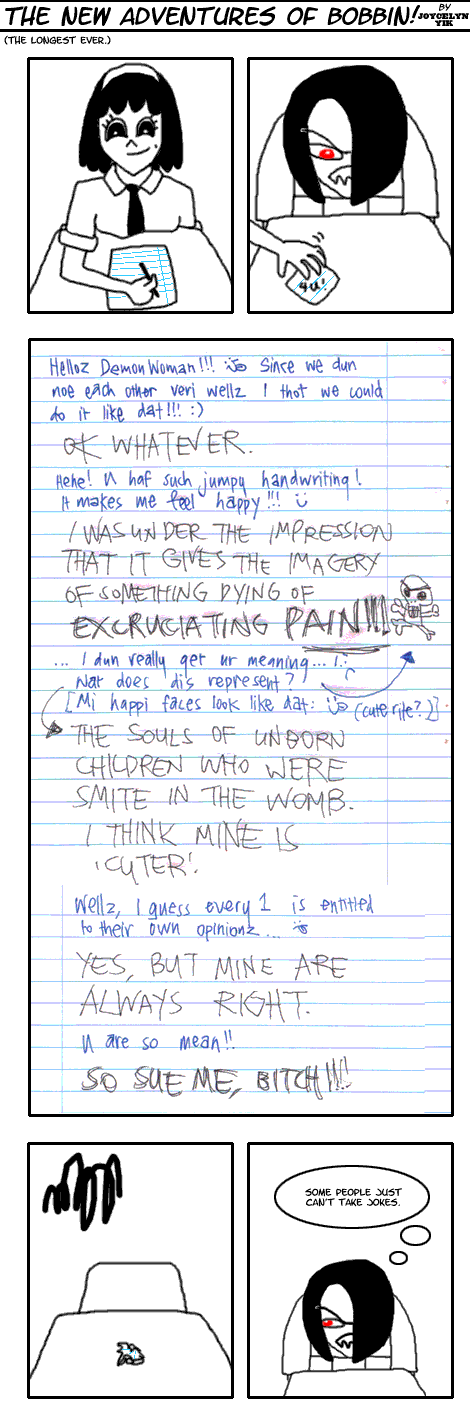 THE NEW ADVENTURES OF BOBBIN!
BY
JOYCELYN
YIK
(THE LONGEST EVER.)
4U!
Helloz DemonWoman!!! Since we dun
noe each other veri wellz I thot we could
do it like dat!!! :)
OK WHATEVER.
Hehe! U haf such jumpy handwriting!
It makes me feel happy!!!
I WAS UNDER THE IMPRESSION
THAT IT GIVES THE IMAGERY
OF SOMETHING DYING OF
EXCRUCIATING PAIN!!!
... I dun really get ur meaning...
Wat does dis represent?
[Mi happi faces look like dat: (cute rite?)]
THE SOULS OF UNBORN
CHILDREN WHO WERE
SMITE IN THE WOMB.
I THINK MINE IS
'CUTER'.
Wellz, I guess every 1 is entitled
to their own opinionz...
YES, BUT MINE ARE
ALWAYS RIGHT.
U are so mean!!
SO SUE ME, BITCH!!!
SOME PEOPLE JUST
CAN'T TAKE JOKES.